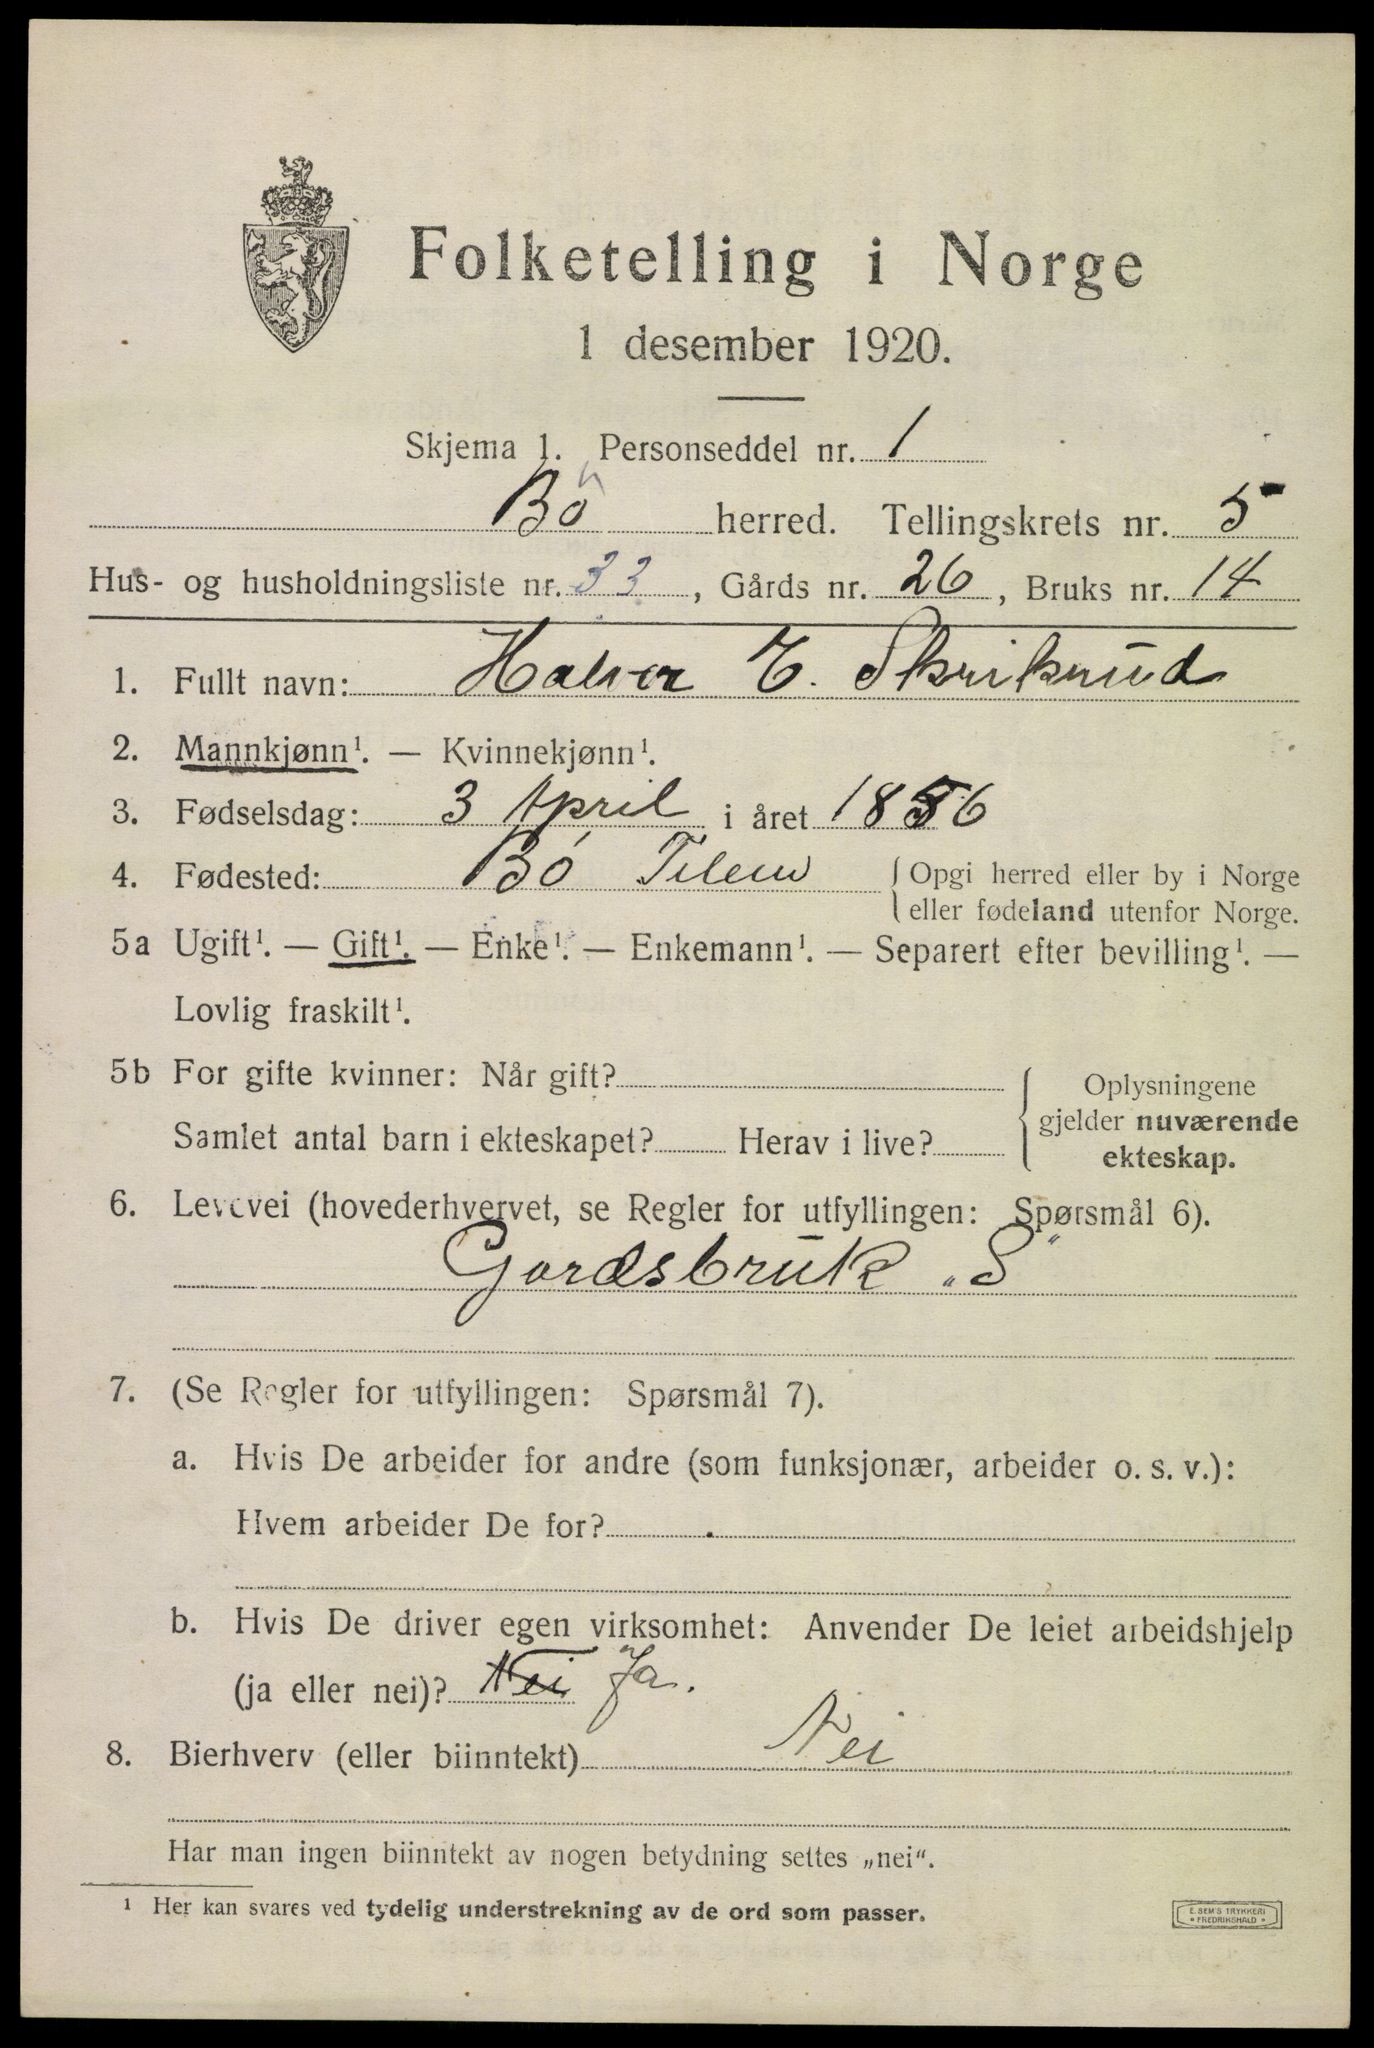 Folketelling i Norge
1 desember 1920.
Skjema 1. Personseddel nr. 1
Bö herred. Tellingskrets nr. 5
Hus- og husholdningsliste nr. 33, Gårds nr. 26, Bruks nr. 14
1. Fullt navn: Halvor E. Skrikerud
2. Mannkjønn¹. — Kvinnekjønn¹.
3. Fødselsdag: 3 April i året 1856
4. Fødested: Bö Telem {Opgi herred eller by i Norge
eller fødeland utenfor Norge.
5a Ugift¹. — Gift¹. — Enke¹. — Enkemann¹. — Separert efter bevilling¹. —
Lovlig fraskilt¹.
5b For gifte kvinner: Når gift?
Samlet antal barn i ekteskapet? Herav i live?
Oplysningene
gjelder nuværende
ekteskap.
6. Levevei (hovederhvervet, se Regler for utfyllingen: Spørsmål 6).
Gordsbruk „S"
7. (Se Regler for utfyllingen: Spørsmål 7).
a. Hvis De arbeider for andre (som funksjonær, arbeider o. s. v.):
Hvem arbeider De for?
b. Hvis De driver egen virksomhet: Anvender De leiet arbeidshjelp
(ja eller nei)? Nei Ja.
8. Bierhverv (eller biinntekt) Nei
Har man ingen biinntekt av nogen betydning settes „nei".
¹ Her kan svares ved tydelig understrekning av de ord som passer.
E. SEM'S TRYKKERI
• FREDRIKSHALD •